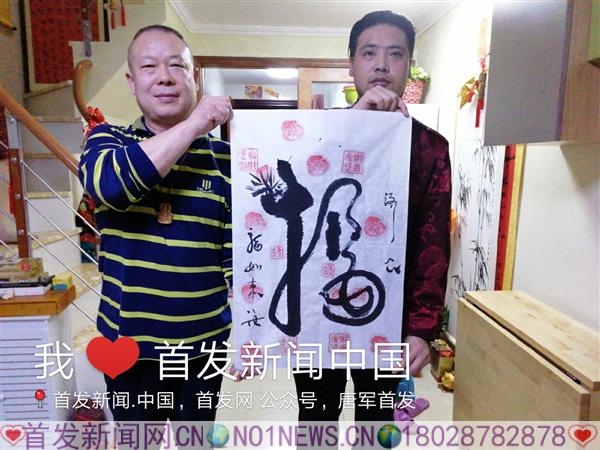 福
福如東海
我❤首发新闻中国
📍首发新闻.中国，首发网 公众号，唐军首发
❤首发新闻网.CN🌏NO1NEWS.CN🌏18028782878❤